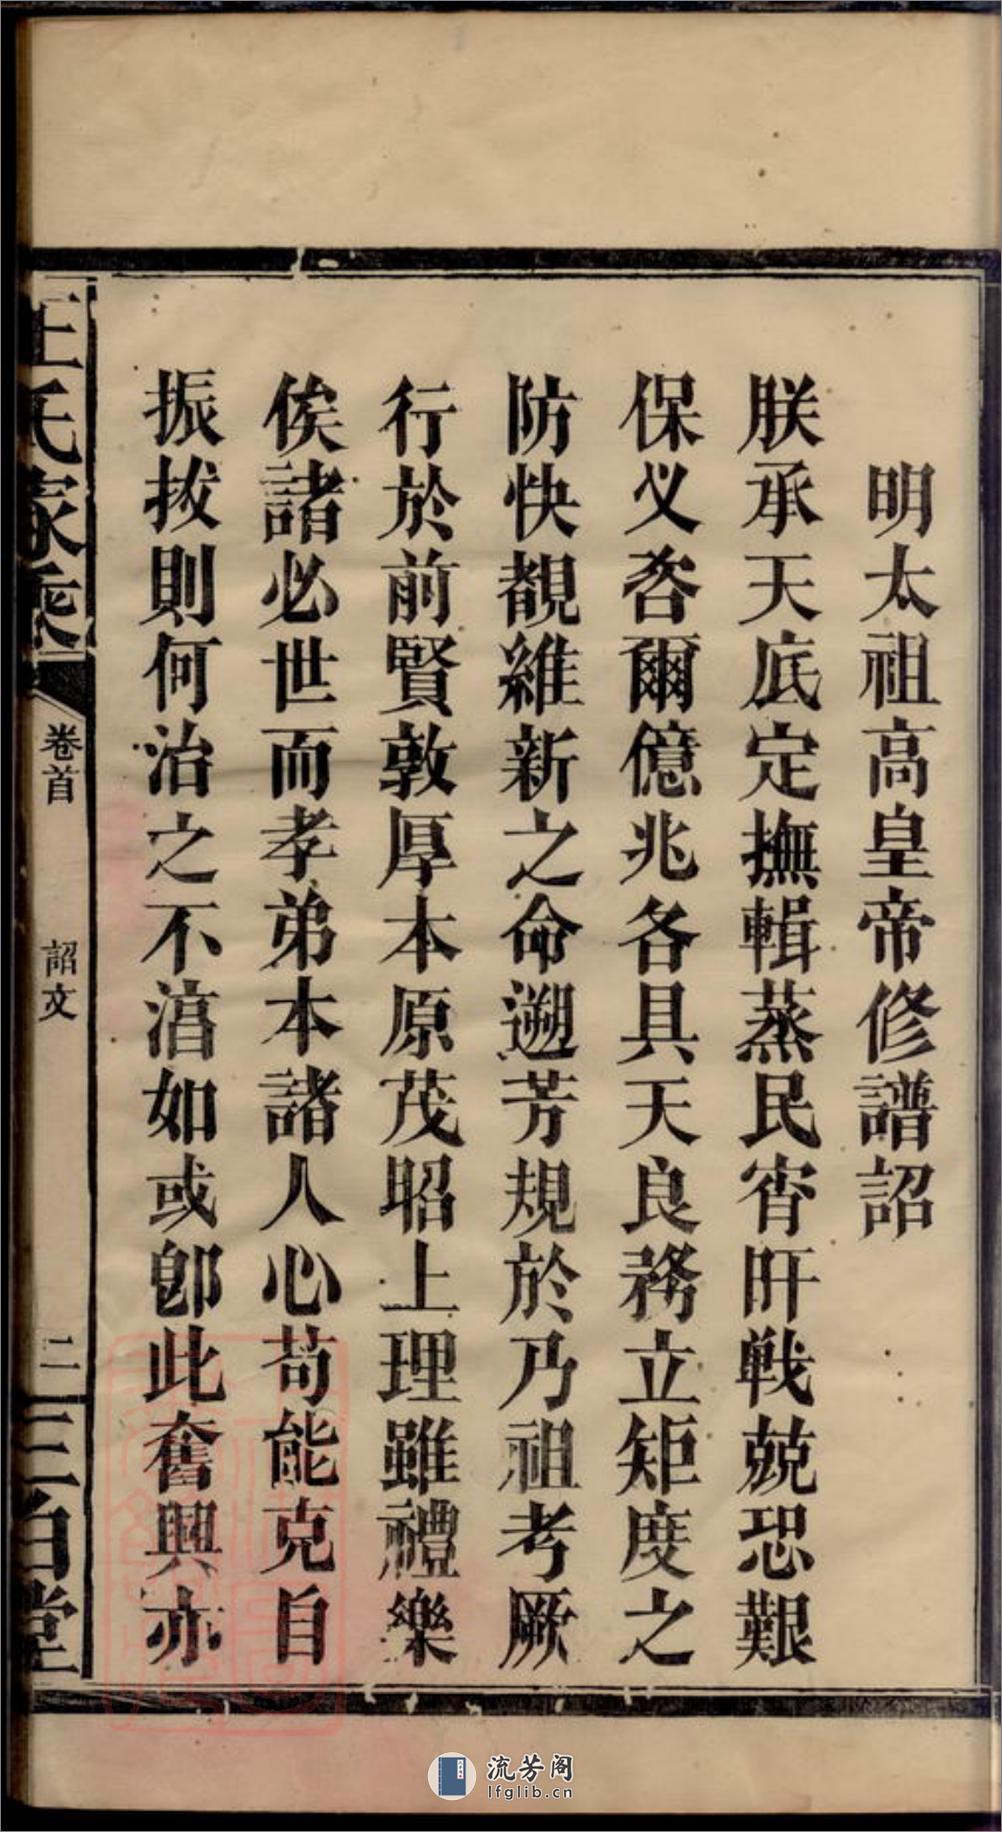 明太祖高皇帝修譜詔
朕承天底定撫輯蒸民宵旰戰兢恐艱
保乂咨爾億兆各具天良務立矩度之
防快覩維新之命遡芳規於乃祖考厥
行於前賢敦厚本原茂昭上理雖禮樂
俟諸必世而孝弟本諸人心苟能克自
振拔則何治之不湻如或卽此奮興亦
王氏家乘
卷首
詔文
二
三白堂
流芳阁
lfglib.cn